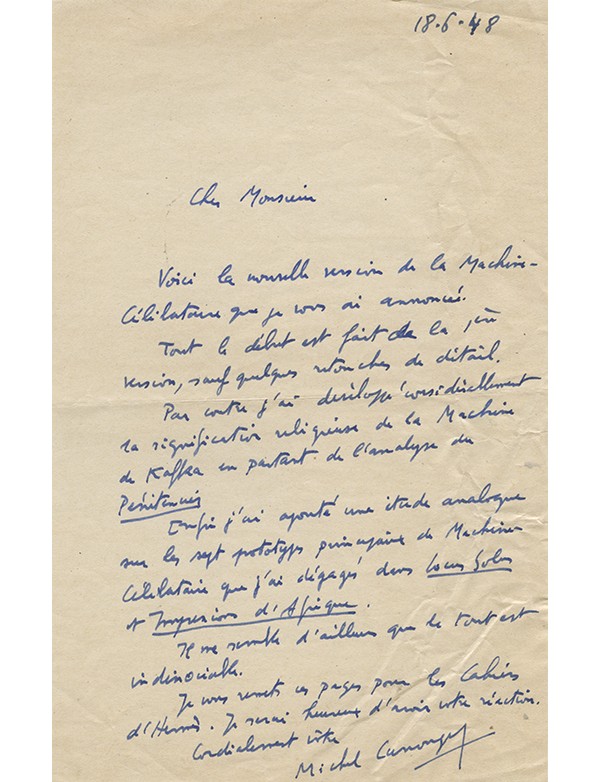 18.6.48
Cher Monsieur
Voici la nouvelle version de la Machine-
Célibataire que je vous ai annoncée.
Tout le début est fait de la 1ère
version, sauf quelques retouches de détail.
Par contre j'ai développé considérablement
la signification religieuse de la Machine
de Kafka en partant de l'analyse du
Pénitencier
Enfin j'ai ajouté une étude analogue
sur les sept prototypes de Machine-
Célibataire que j'ai dégagés dans Locus Solus
et Impressions d'Afrique.
Il me semble d'ailleurs que le tout est
indissociable.
Je vous remets ces pages pour les Cahiers
d'Hermès. Je serai heureux d'avoir votre réaction.
Cordialement vôtre
Michel Carrouges